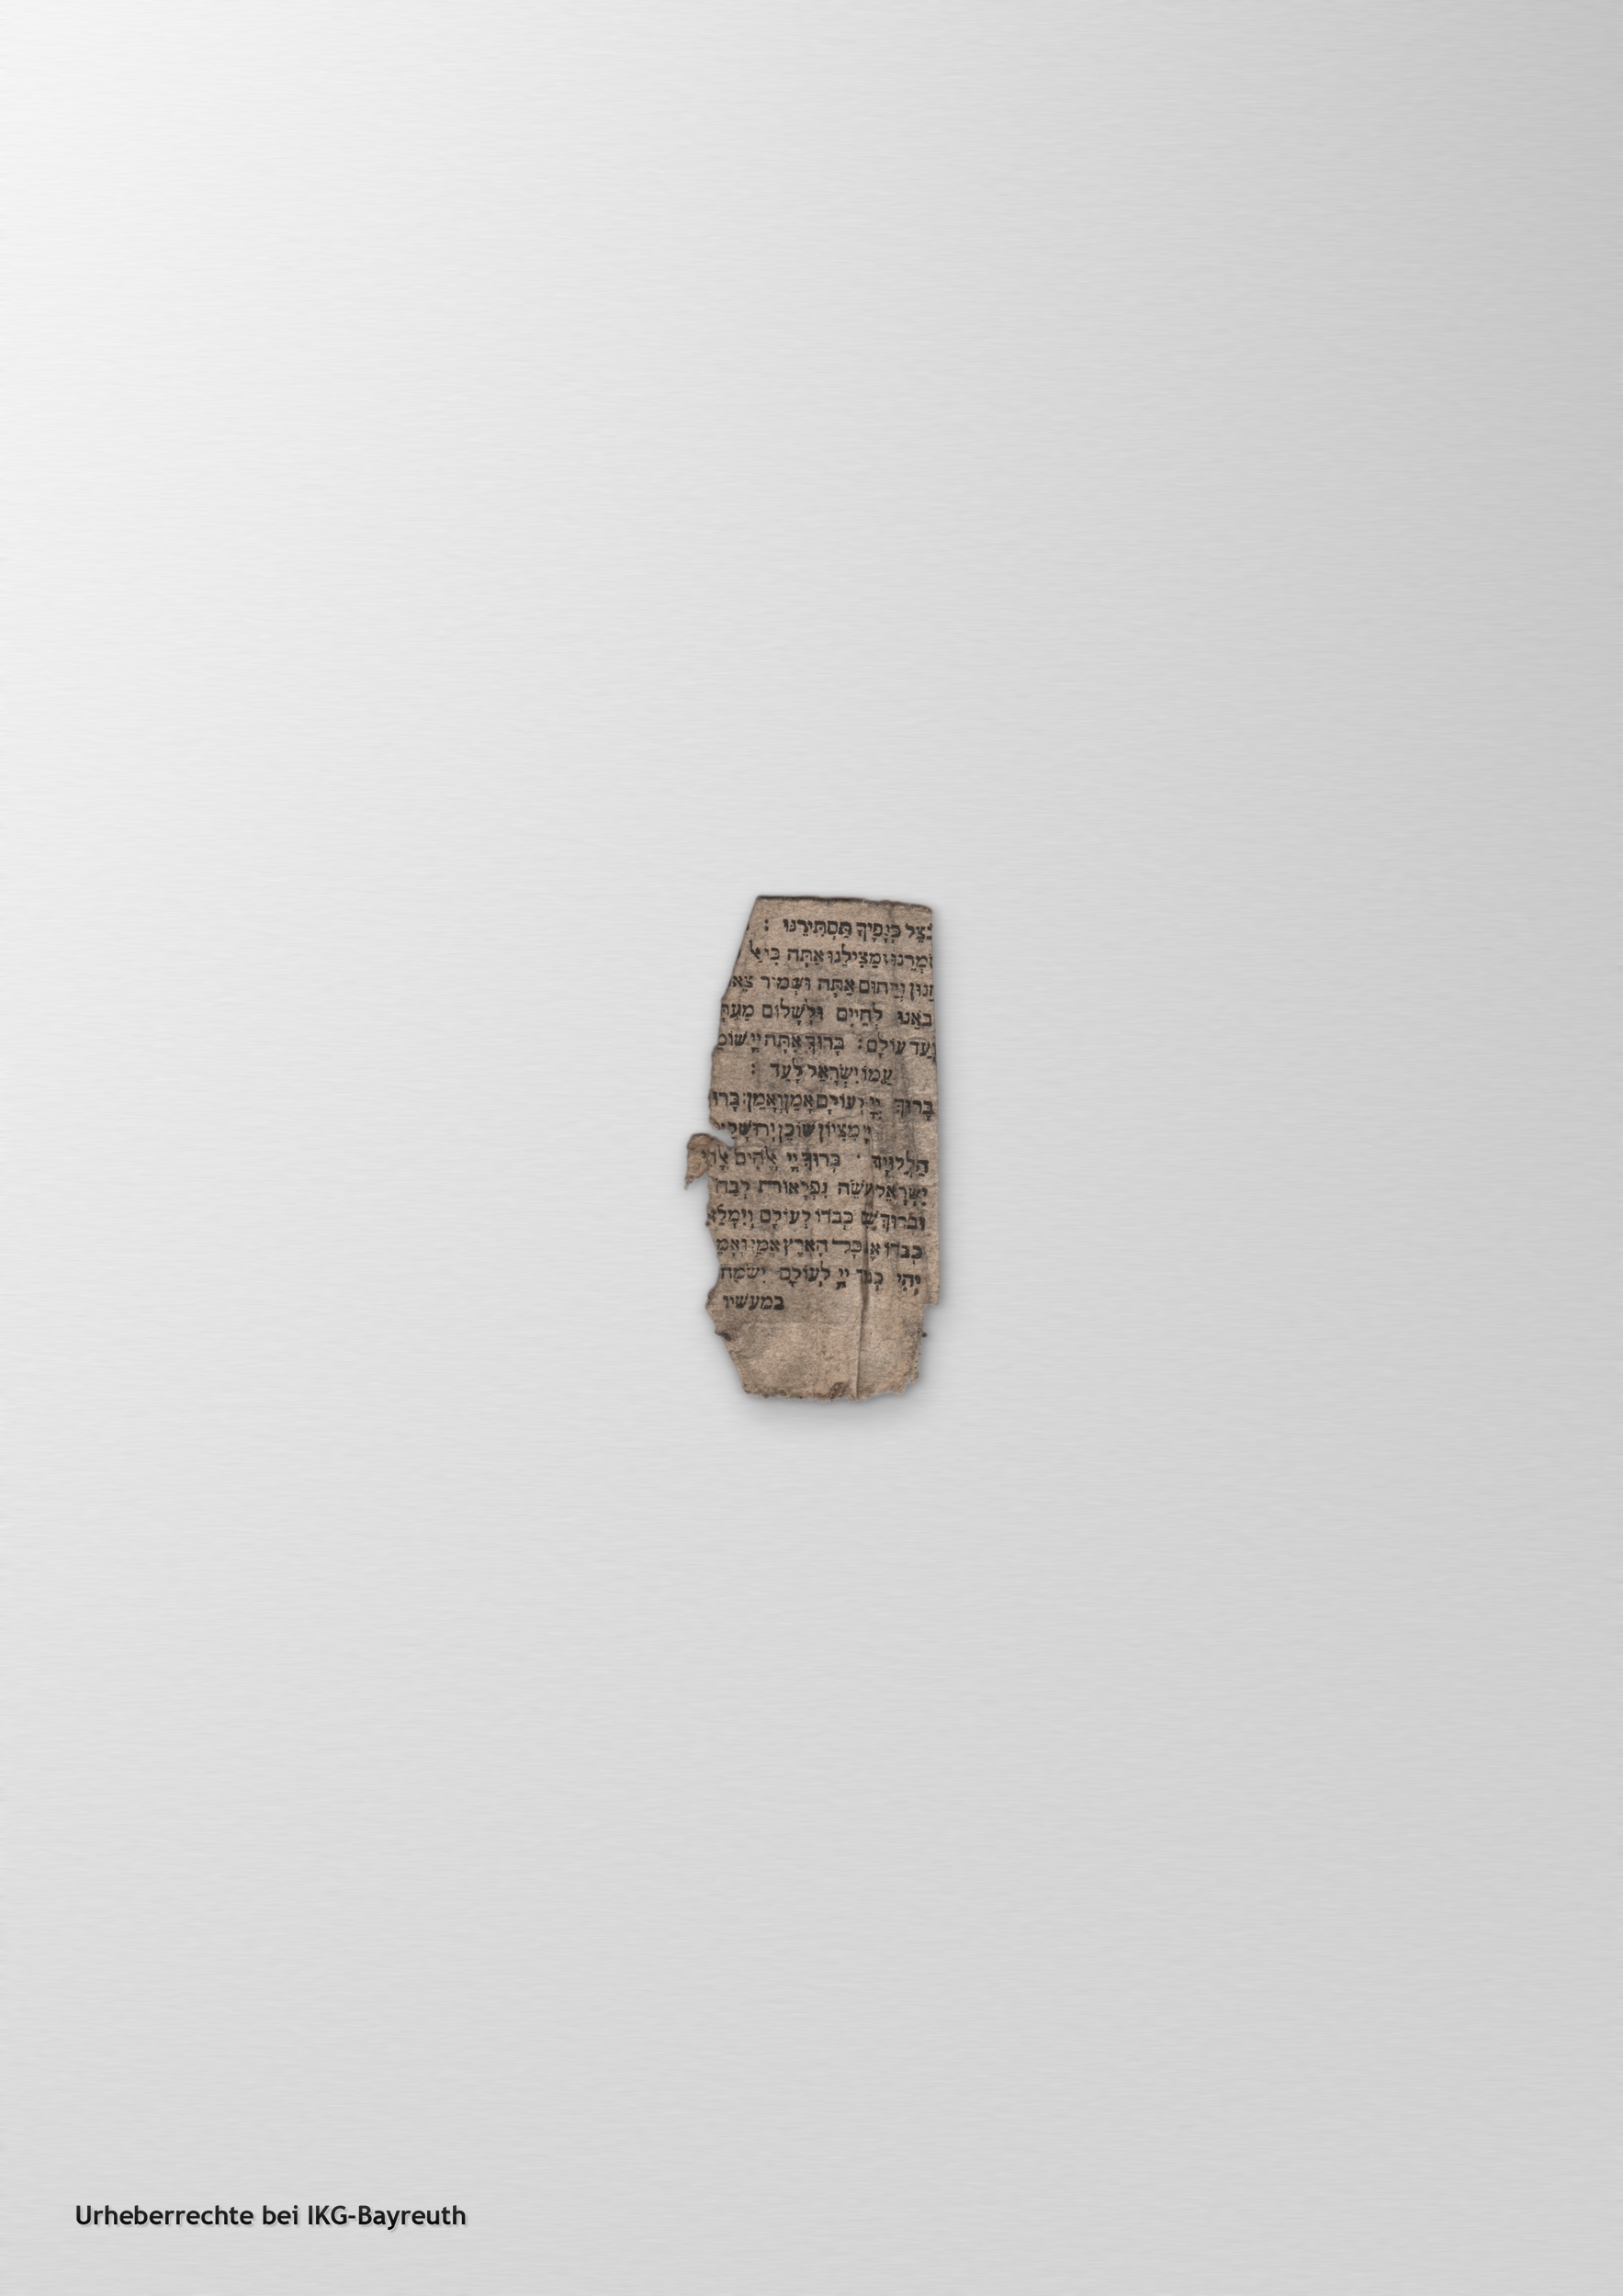 בְּצֵל כְּנָפֶיךָ תַּסְתִּירֵנוּ :
שׁוֹמְרֵנוּ וּמַצִּילֵנוּ אַתָּה כִּי
חַנּוּן וְרַחוּם אַתָּה וּשְׁמוֹר
וּבֹאֵנוּ לְחַיִּים וּלְשָׁלוֹם
וְעַד עוֹלָם : בָּרוּךְ אַתָּה יְיָ
עַמּוֹ יִשְׂרָאֵל לָעַד :
בָּרוּךְ יְיָ לְעוֹלָם אָמֵן וְאָמֵן :
יְיָ מִצִּיּוֹן שׁוֹכֵן
הַלְלוּיָהּ . בָּרוּךְ יְיָ אֱלֹהִים
יִשְׂרָאֵל עֹשֵׂה נִפְלָאוֹת
וּבָרוּךְ שֵׁם כְּבֹדוֹ לְעוֹלָם
כְּבֹדוֹ אֵת כָּל הָאָרֶץ אָמֵן
יְהִי כְבֹד יְיָ לְעוֹלָם יִשְׂמַח
במעשיו
Urheberrechte bei IKG-Bayreuth